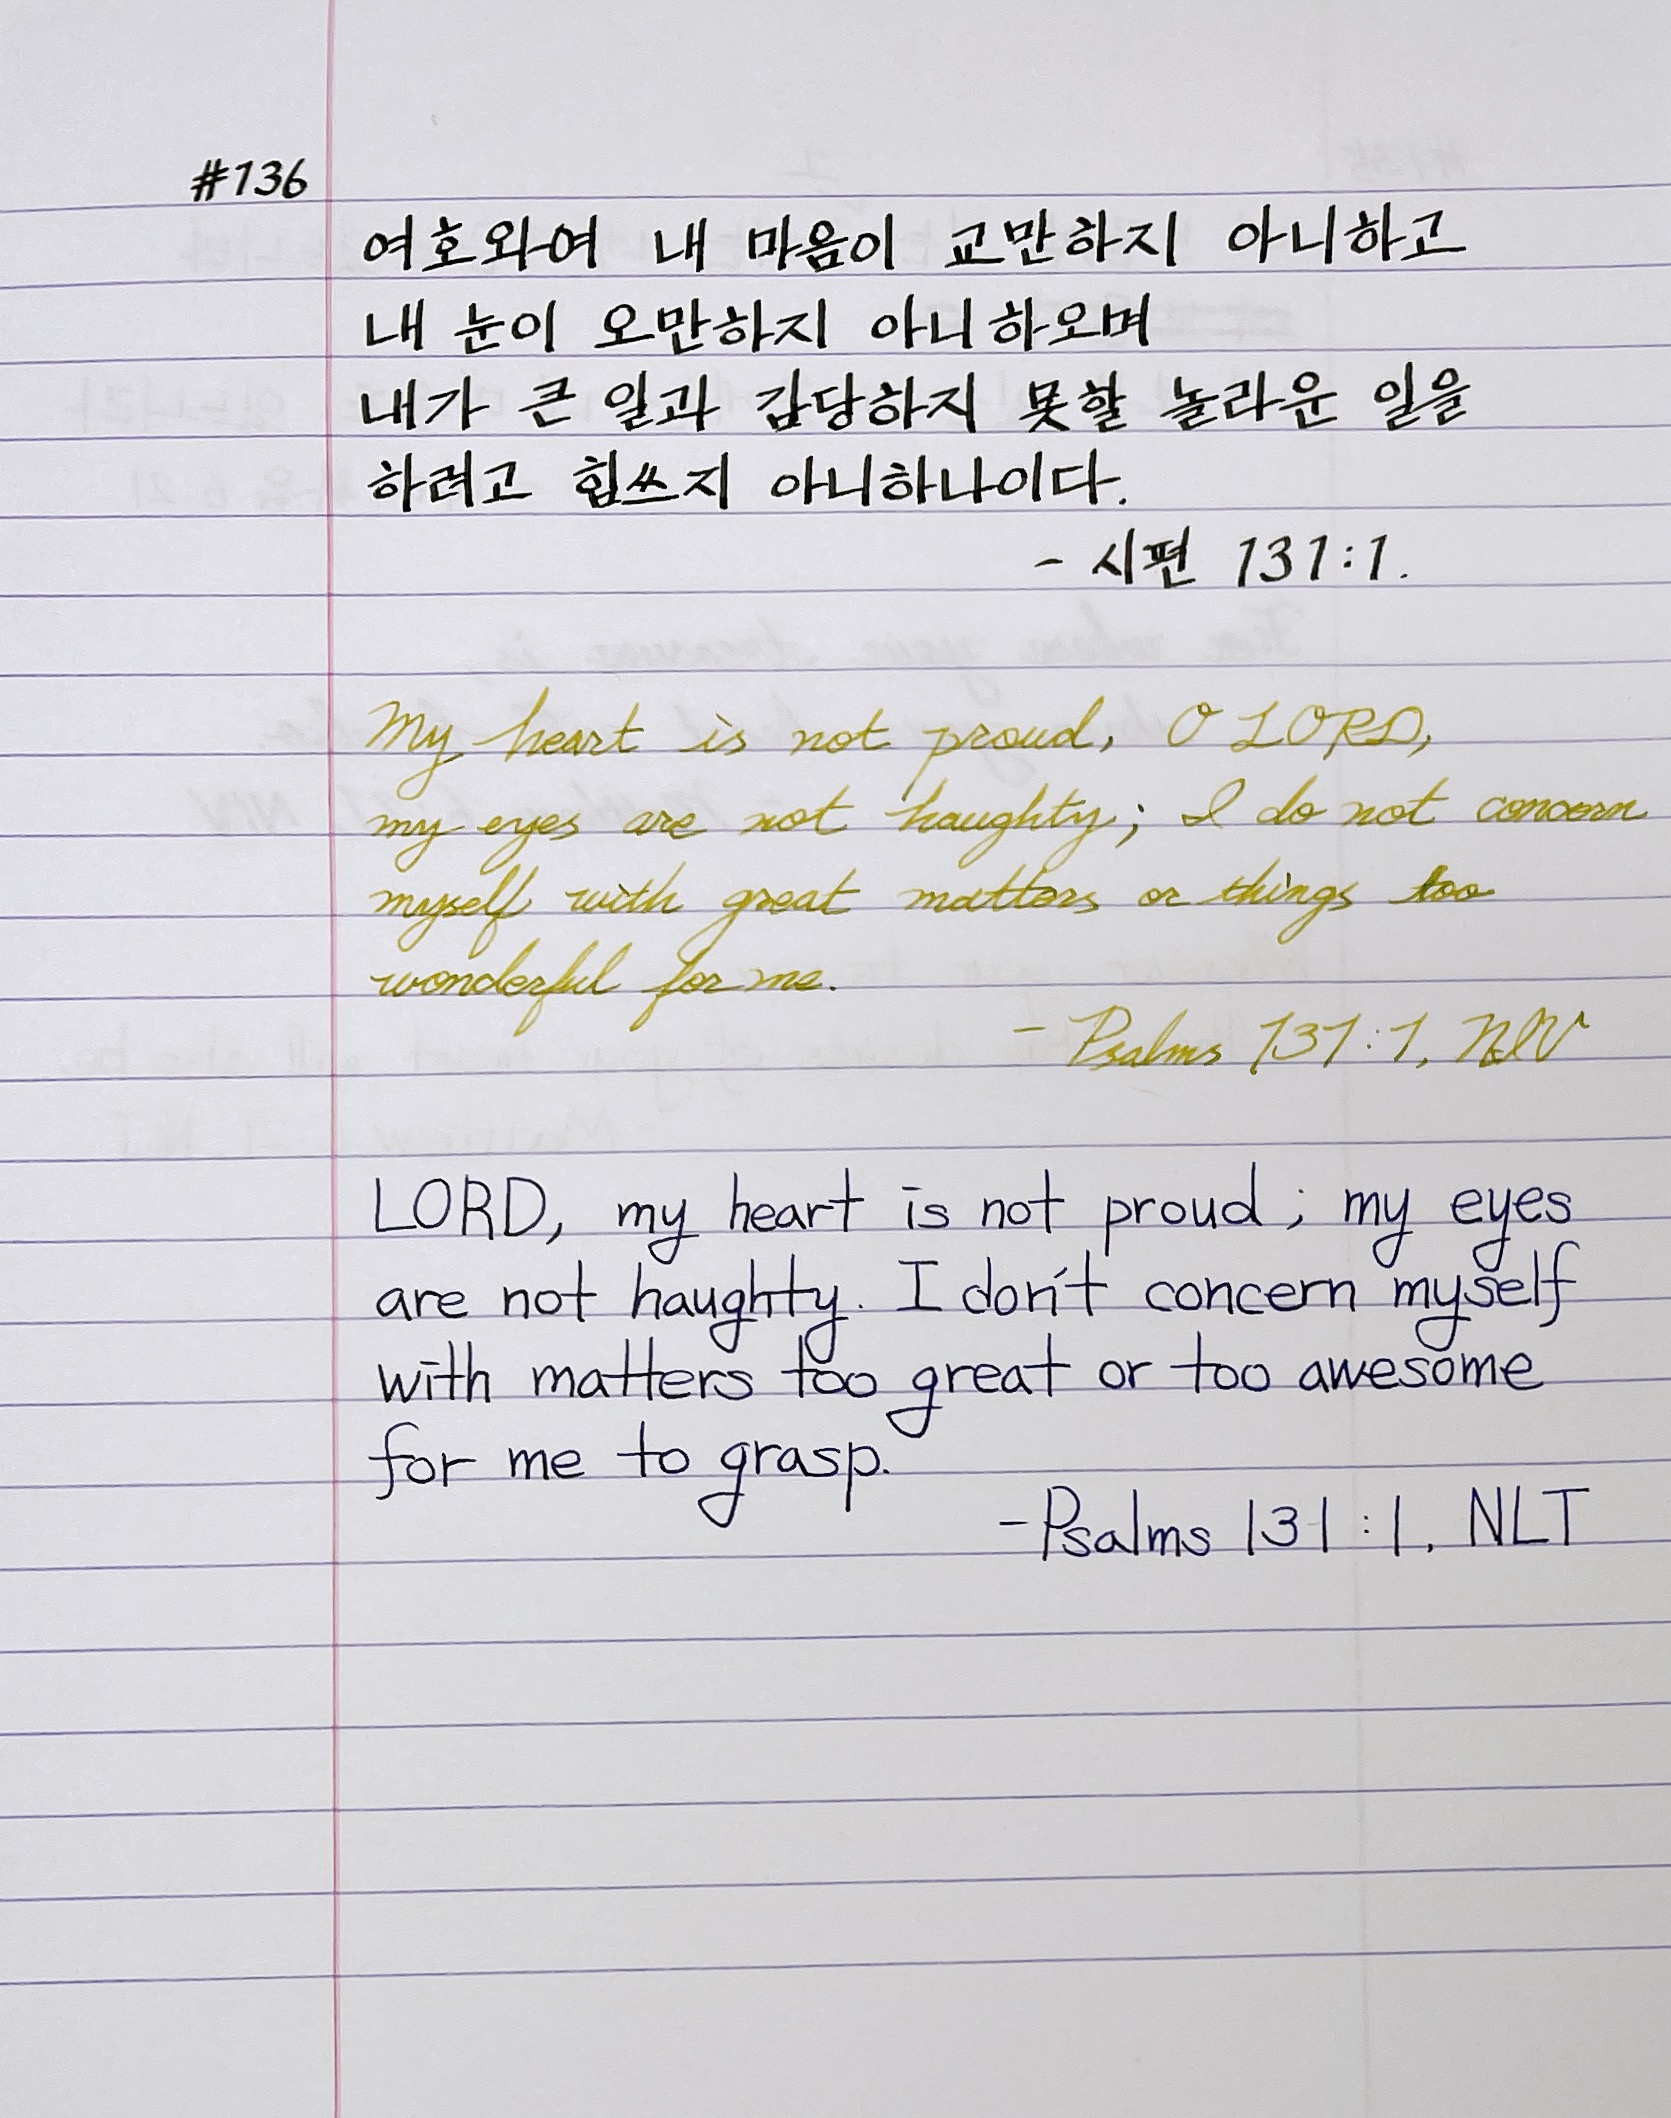 #136
여호와여 내 마음이 교만하지 아니하고
내 눈이 오만하지 아니하오며
내가 큰 일과 감당하지 못할 놀라운 일을
하려고 힘쓰지 아니하나이다.
- 시편 131:1.
My heart is not proud, O LORD,
my eyes are not haughty; I do not concern
myself with great matters or things too
wonderful for me.
- Psalms 131:1, NIV
LORD, my heart is not proud; my eyes
are not haughty. I don't concern myself
with matters too great or too awesome
for me to grasp.
- Psalms 131:1, NLT